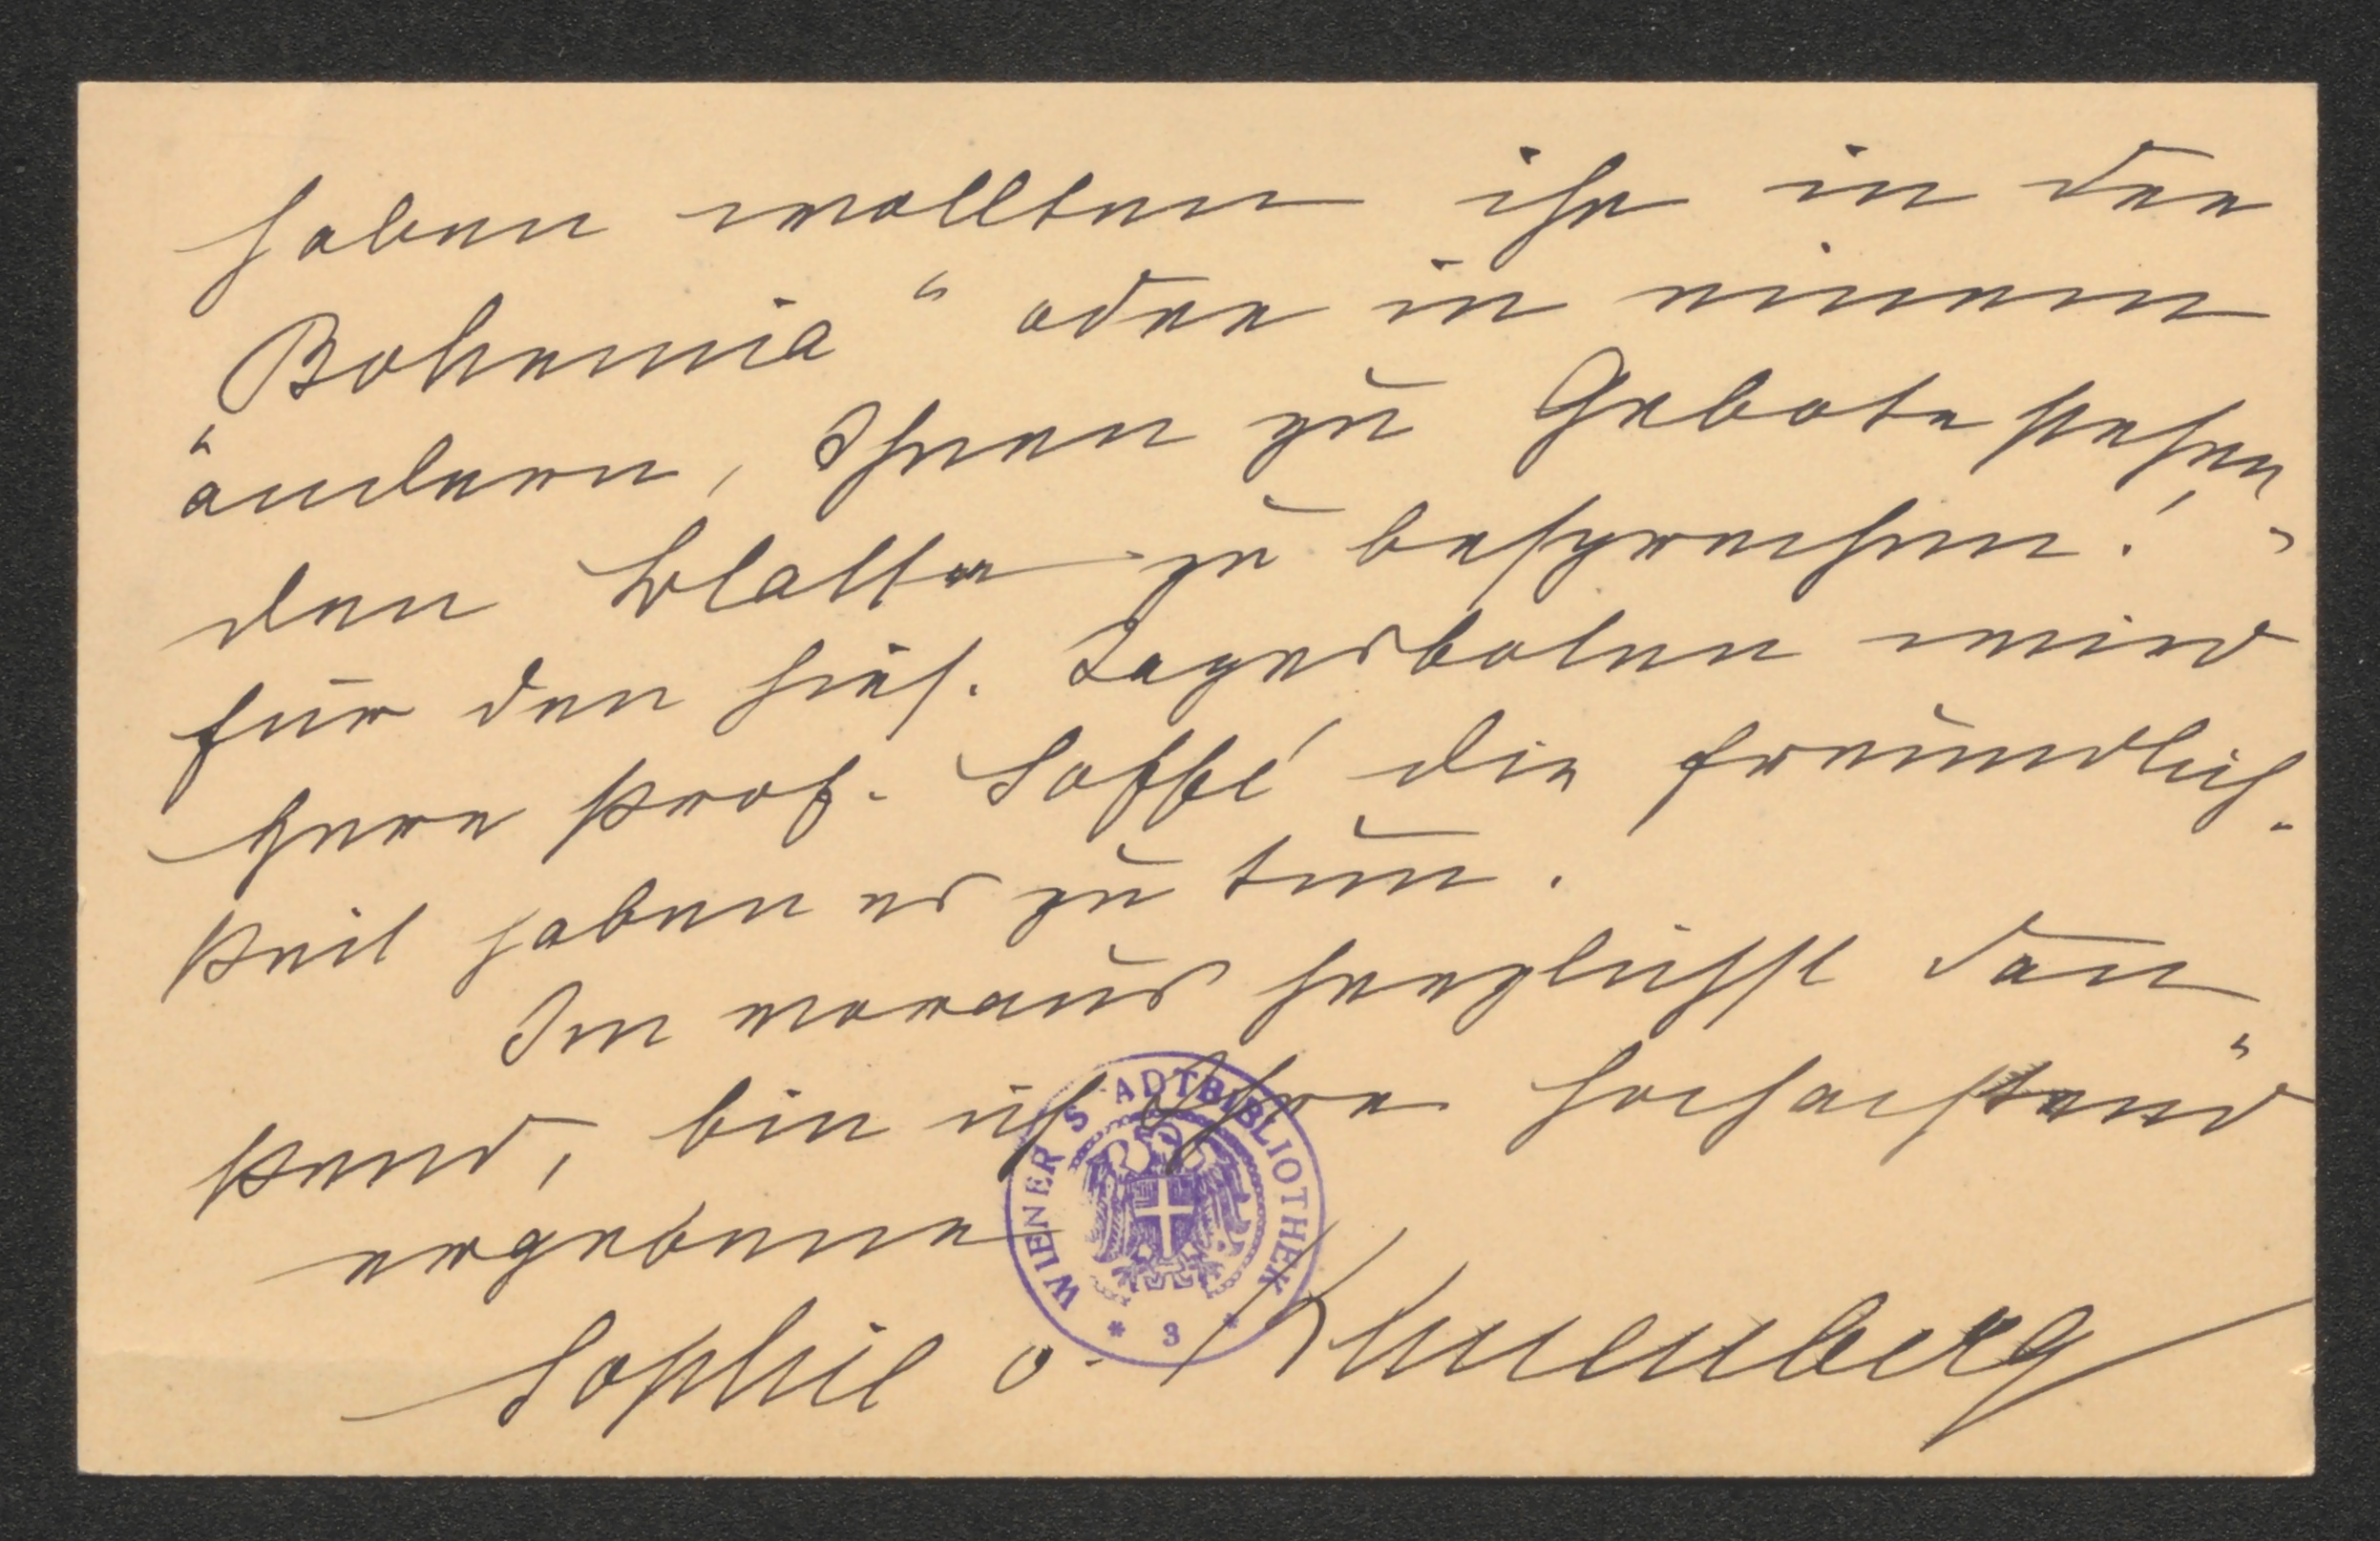 haben wollten ihr in der
„Bohemia“ oder in einem
andern, Ihnen zu Gebote stehen-
den Blatte zu besprechen!
für den hies. Tagesboten wird
Herr Prof. Soffé die Freundlich-
keit haben es zu tun.
Im voraus herzlichst dan-
kend, bin ich Ihre hochachtend
ergebene
Sophie v. Khuenberg
WIENER STADTBIBLIOTHEK
* 3 *